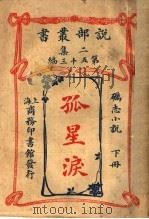 說部叢書
二集
第五十三編
勵志小說
孤星淚
下冊
上海商務印書館發行